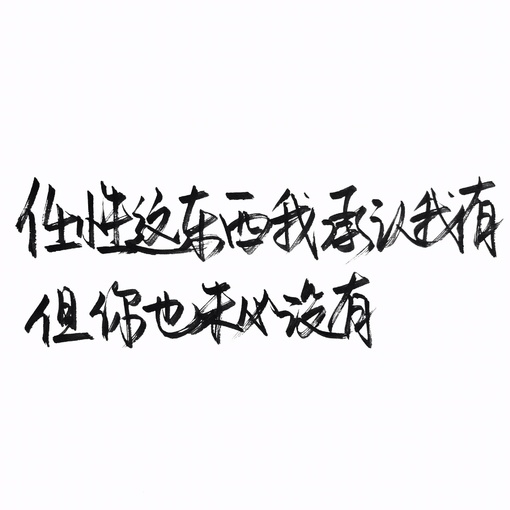 任性这东西我承认我有
但你也未必没有